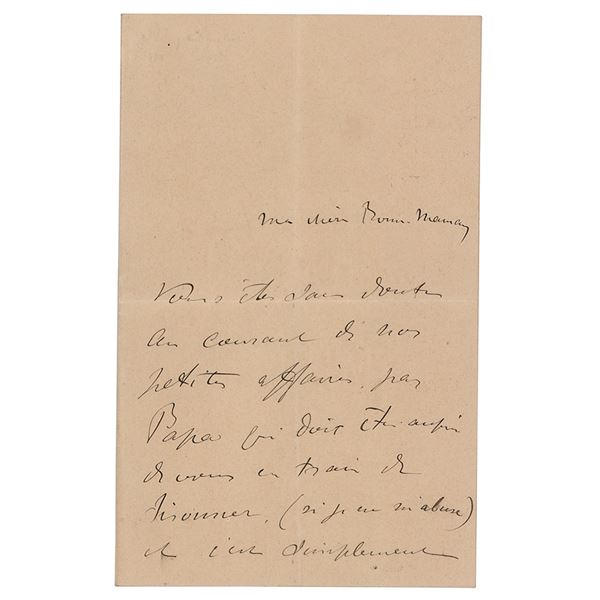 ma chère Bonne-Maman,
Vous êtes sans doute
au courant de nos
petites affaires, par
Papa qui doit être auprès
de vous en train de
(si je ne m'abuse)
et c'est simplement